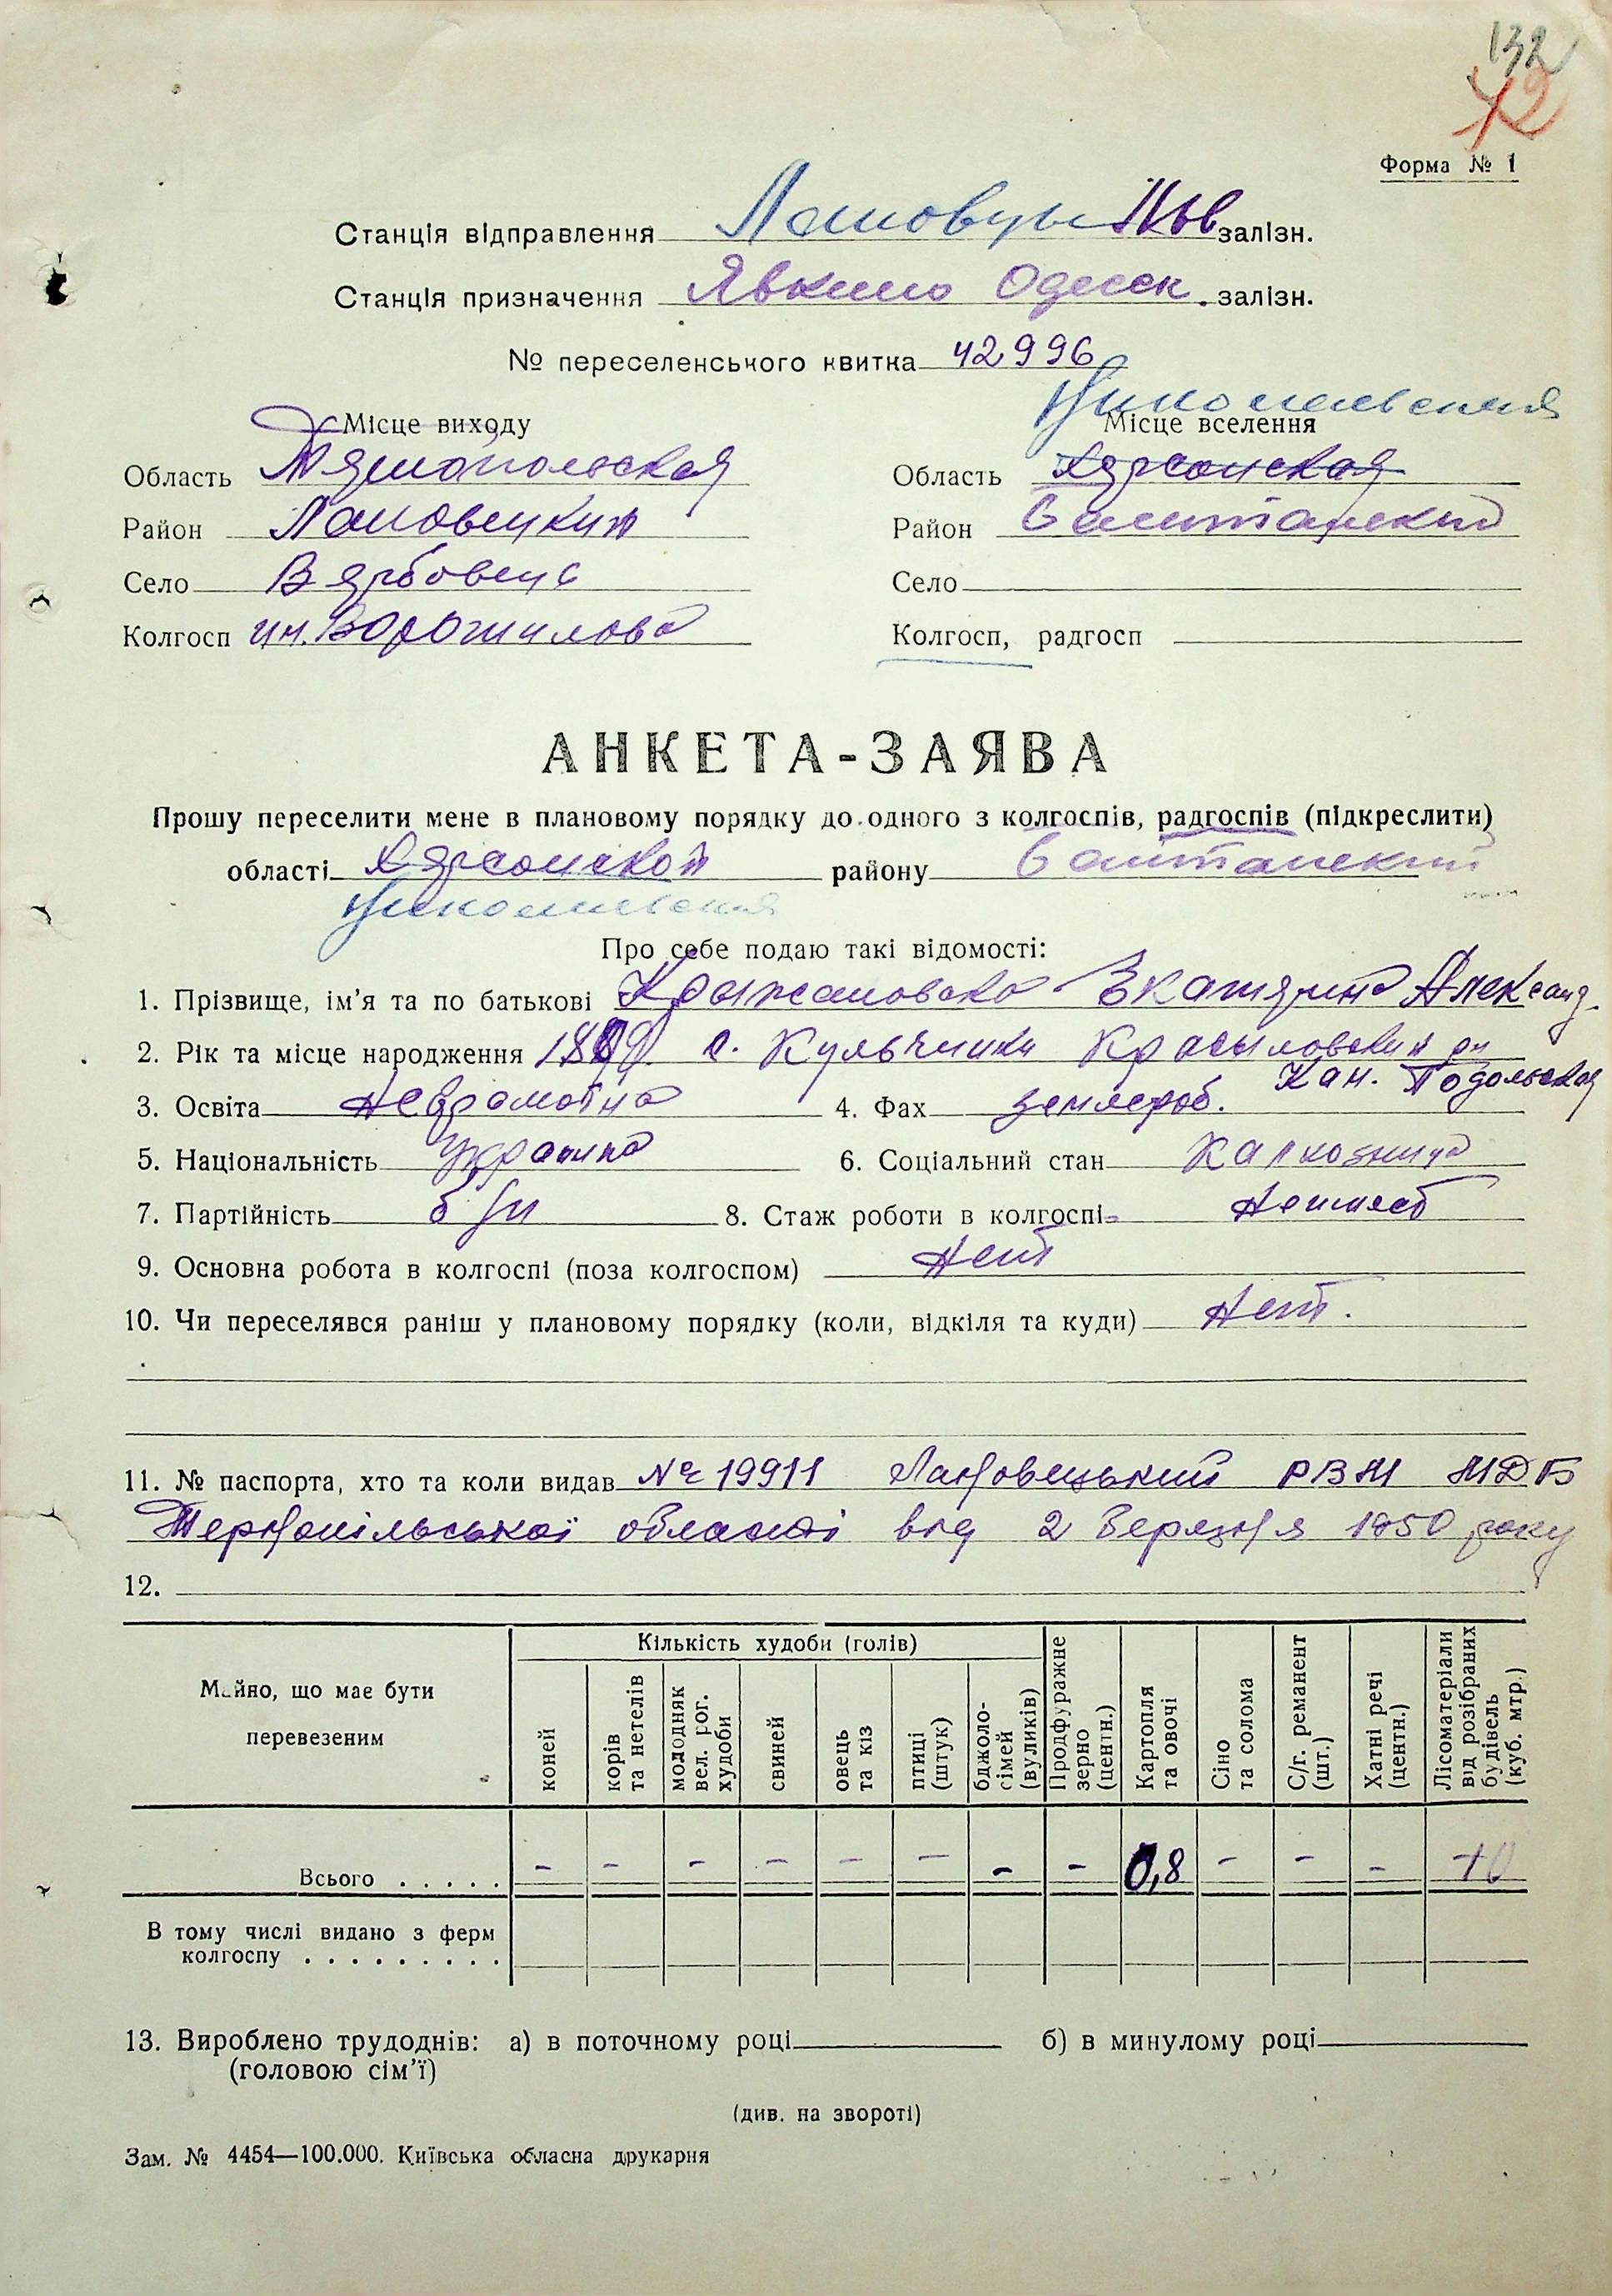 132
42
Форма № 1
Станція відправлення Лановцы Льв залізн.
Станція призначення Явкино Одесск. залізн.
№ переселенського квитка 42996
Николаевская
Місце виходу Місце вселення
Область Тернопольская Область Херсонская
Район Лановецкий Район Баштанский
Село Вербовець Село
Колгосп им. Ворошилова Колгосп, радгосп
АНКЕТА-ЗАЯВА
Прошу переселити мене в плановому порядку до одного з колгоспів, радгоспів (підкреслити)
області Херсонской району Баштанский
Николаевская
Про себе подаю такі відомості:
1. Прізвище, ім'я та по батькові Крыжановска Екатерина Александ.
2. Рік та місце народження с. Кульчинки Красиловский рн
Кам. Подольская
3. Освіта Неграмотна 4. Фах землероб.
5. Національність Украинка 6. Соціальний стан Калхозница
7. Партійність б/п 8. Стаж роботи в колгоспі
9. Основна робота в колгоспі (поза колгоспом) Нет
10. Чи переселявся раніш у плановому порядку (коли, відкіля та куди) Нет.
11. № паспорта, хто та коли видав № 19911 Лановецький РВМ МДБ
Тернопільської області від 2 Березня 1950 року
12.
Майно, що має бути перевезеним
Кількість худоби (голів)
коней
корів та нетелів
молодняк вел. рог. худоби
свиней
овець та кіз
птиці (штук)
бджоло-сімей (вуликів)
Продфуражне зерно (центн.)
Картопля та овочі
Сіно та солома
С/г. реманент (шт.)
Хатні речі (центн.)
Лісоматеріали від розібраних будівель (куб. мтр.)
Всього . . . . . - - - - - - - - 0,8 - - - 10
В тому числі видано з ферм
колгоспу . . . . . . . . .
13. Вироблено трудоднів: а) в поточному році б) в минулому році
(головою сім'ї)
(див. на звороті)
Зам. № 4454—100.000. Київська обласна друкарня